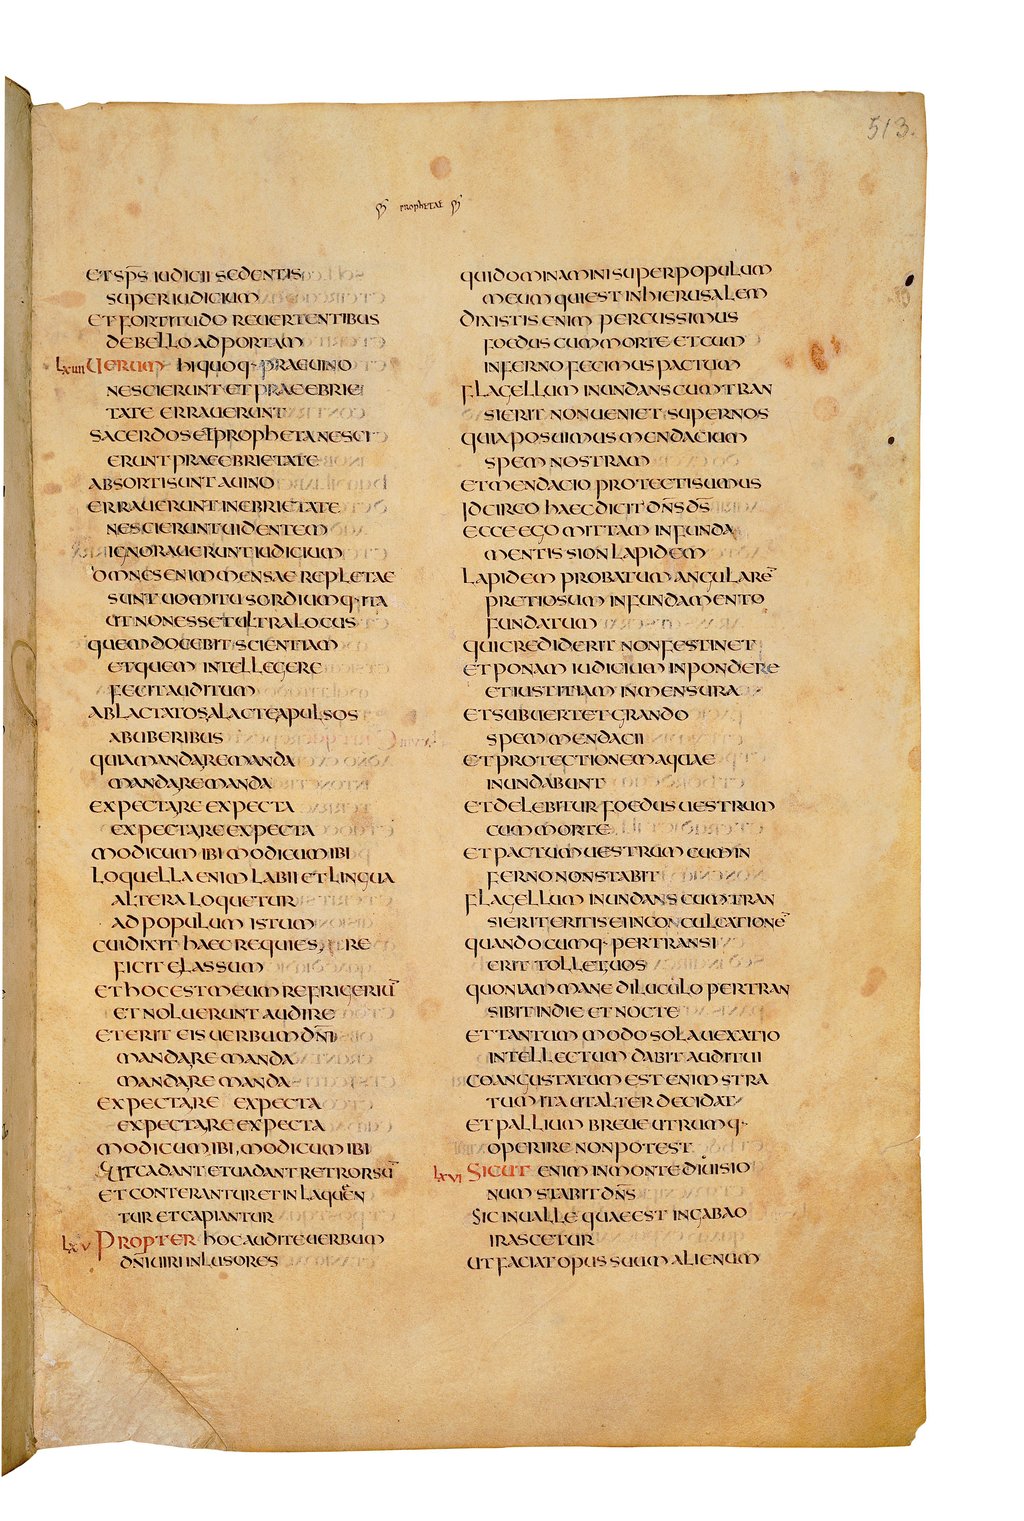 513.
PROPHETAE
ET SP̅S IUDICII SEDENTIS
SUPER IUDICIUM
ET FORTITUDO REUERTENTIBUS
DE BELLO AD PORTAM
LXIIII UERUM HI QUOQ· PRAE UINO
NESCIERUNT ET PRAE EBRIE
TATE ERRAUERUNT
SACERDOS ET PROPHETA NESCI
ERUNT PRAE EBRIETATE
ABSORTI SUNT A UINO
ERRAUERUNT IN EBRIETATE
NESCIERUNT UIDENTEM
IGNORAUERUNT IUDICIUM
OMNES ENIM MENSAE REPLETAE
SUNT UOMITU SORDIUMQ· ITA
UT NON ESSET ULTRA LOCUS
QUEM DOCEBIT SCIENTIAM
ET QUEM INTELLEGERE
FECIT AUDITUM
ABLACTATOS A LACTE APULSOS
AB UBERIBUS
QUIA MANDA REMANDA
MANDA REMANDA
EXPECTA REEXPECTA
EXPECTA REEXPECTA
MODICUM IBI MODICUM IBI
LOQUELLA ENIM LABII ET LINGUA
ALTERA LOQUETUR
AD POPULUM ISTUM
CUI DIXIT HAEC REQUIES RE
FICITE LASSUM
ET HOC EST MEUM REFRIGERIU̅
ET NOLUERUNT AUDIRE
ET ERIT EIS UERBUM DN̅I
MANDA REMANDA
MANDA REMANDA
EXPECTA RE EXPECTA
EXPECTA REEXPECTA
MODICUM IBI, MODICUM IBI
UT CADANT ET UADANT RETRORSU̅
ET CONTERANTUR ET INLAQUEN
TUR ET CAPIANTUR
LXV PROPTER HOC AUDITE UERBUM
DN̅I UIRI INLUSORES
QUI DOMINAMINI SUPER POPULUM
MEUM QUI EST IN HIERUSALEM
DIXISTIS ENIM PERCUSSIMUS
FOEDUS CUM MORTE ET CUM
INFERNO FECIMUS PACTUM
FLAGELLUM INUNDANS CUM TRAN
SIERIT NON UENIET SUPER NOS
QUIA POSUIMUS MENDACIUM
SPEM NOSTRAM
ET MENDACIO PROTECTI SUMUS
IDCIRCO HAEC DICIT DN̅S D̅S
ECCE EGO MITTAM IN FUNDA
MENTIS SION LAPIDEM
LAPIDEM PROBATUM ANGULARE̅
PRETIOSUM IN FUNDAMENTO
FUNDATUM
QUI CREDIDERIT NON FESTINET
ET PONAM IUDICIUM IN PONDERE
ET IUSTITIAM IN MENSURA
ET SUBUERTET GRANDO
SPEM MENDACII
ET PROTECTIONEM AQUAE
INUNDABUNT
ET DELEBITUR FOEDUS UESTRUM
CUM MORTE
ET PACTUM UESTRUM CUM IN
FERNO NON STABIT
FLAGELLUM INUNDANS CUM TRAN
SIERIT ERITIS EI IN CONCULCATIONE̅
QUANDOCUMQ· PERTRANSI
ERIT TOLLET UOS
QUONIAM MANE DILUCULO PERTRAN
SIBIT IN DIE ET NOCTE
ET TANTUM MODO SOLA UEXATIO
INTELLECTUM DABIT AUDITUI
COANGUSTATUM EST ENIM STRA
TUM ITA UT ALTER DECIDAT
ET PALLIUM BREUE UTRUMQ·
OPERIRE NON POTEST
LXVI SICUT ENIM IN MONTE DIUISIO
NUM STABIT DN̅S
SIC IN UALLE QUAE EST IN GABAO
IRASCETUR
UT FACIAT OPUS SUUM ALIENUM